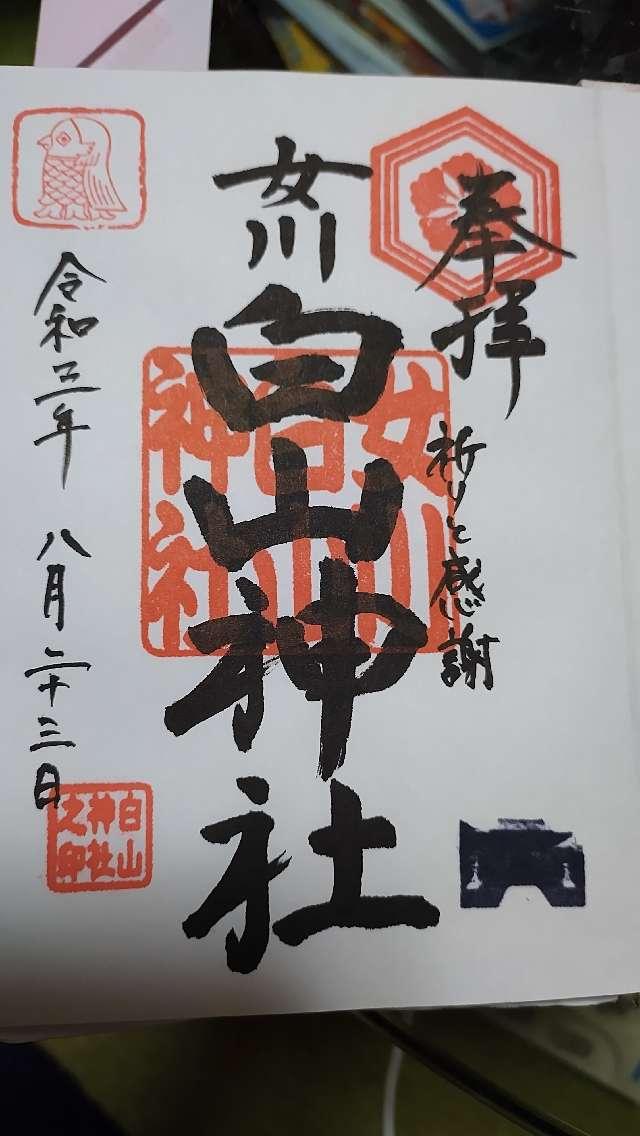 奉拝
祈りと感謝
女川
白山神社
女川
白山
神社
令和三年 八月二十三日
白山
神社
之印